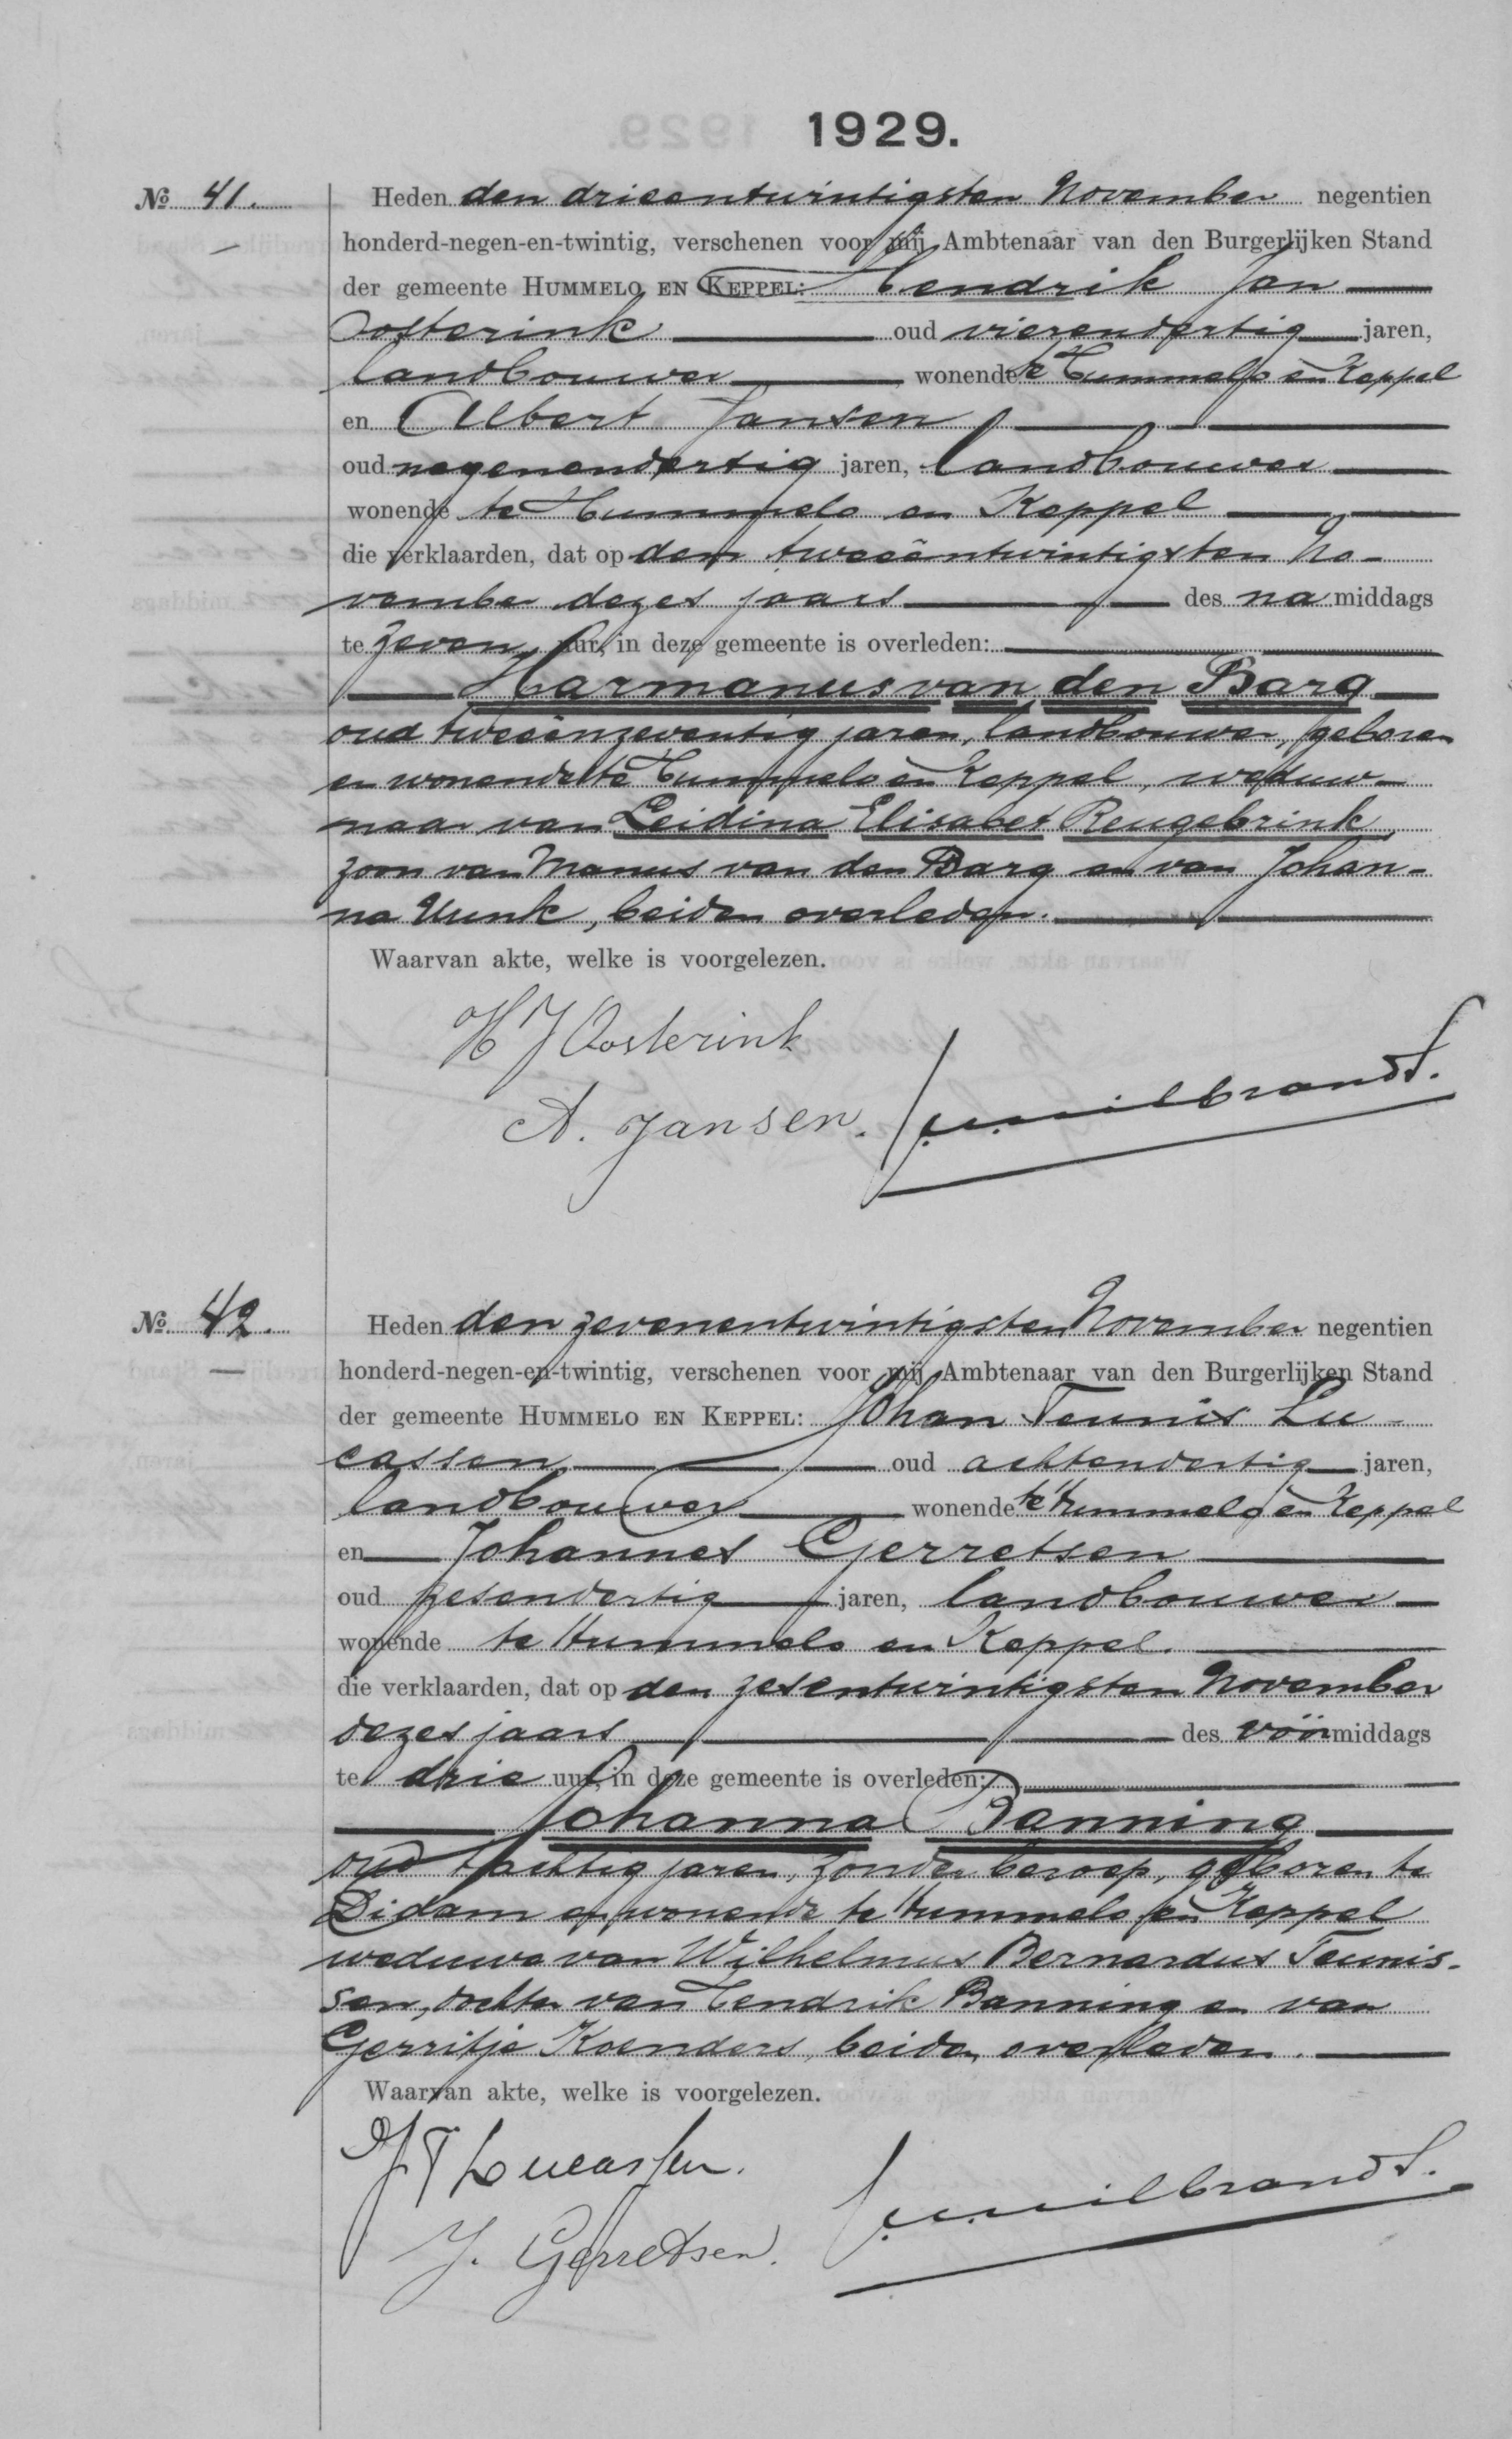 1929.
No 41.
Heden den drieentwintigsten November negentien
honderd-negen-en-twintig, verschenen voor mij Ambtenaar van den Burgerlijken Stand
der gemeente HUMMELO EN KEPPEL: Hendrik Jan
Oosterink oud vierendertig jaren,
landbouwer, wonende te Hummelo en Keppel
en Albert Jansen
oud negenendertig jaren, landbouwer
wonende te Hummelo en Keppel
die verklaarden, dat op den tweeëntwintigsten No-
vember dezes jaars des na middags
te zeven uur, in deze gemeente is overleden:
Harmanus van den Barg
oud tweeënzeventig jaren, landbouwer, geboren
en wonende te Hummelo en Keppel, weduw-
naar van Leidina Elisabet Reugebrink
zoon van Manus van den Barg en van Johan-
na Uunk, beiden overleden.
Waarvan akte, welke is voorgelezen.
H J Oosterink
A. Jansen.
No 42.
Heden den zevenentwintigsten November negentien
honderd-negen-en-twintig, verschenen voor mij Ambtenaar van den Burgerlijken Stand
der gemeente HUMMELO EN KEPPEL: Johan Teunis Lu-
cassen oud achtendertig jaren,
landbouwer wonende te Hummelo en Keppel
en Johannes Gerretsen
oud zesendertig jaren, landbouwer
wonende te Hummelo en Keppel.
die verklaarden, dat op den zesentwintigsten November
dezes jaars des vóórmiddags
te drie uur, in deze gemeente is overleden:
Johanna Banning
oud tachtig jaren, zonder beroep, geboren te
Didam en wonende te Hummelo en Keppel
weduwe van Wilhelmus Bernardus Teunis-
sen, dochter van Hendrik Banning en van
Gerritje Koenders, beiden overleden.
Waarvan akte, welke is voorgelezen.
J T Lucassen.
J. Gerretsen.